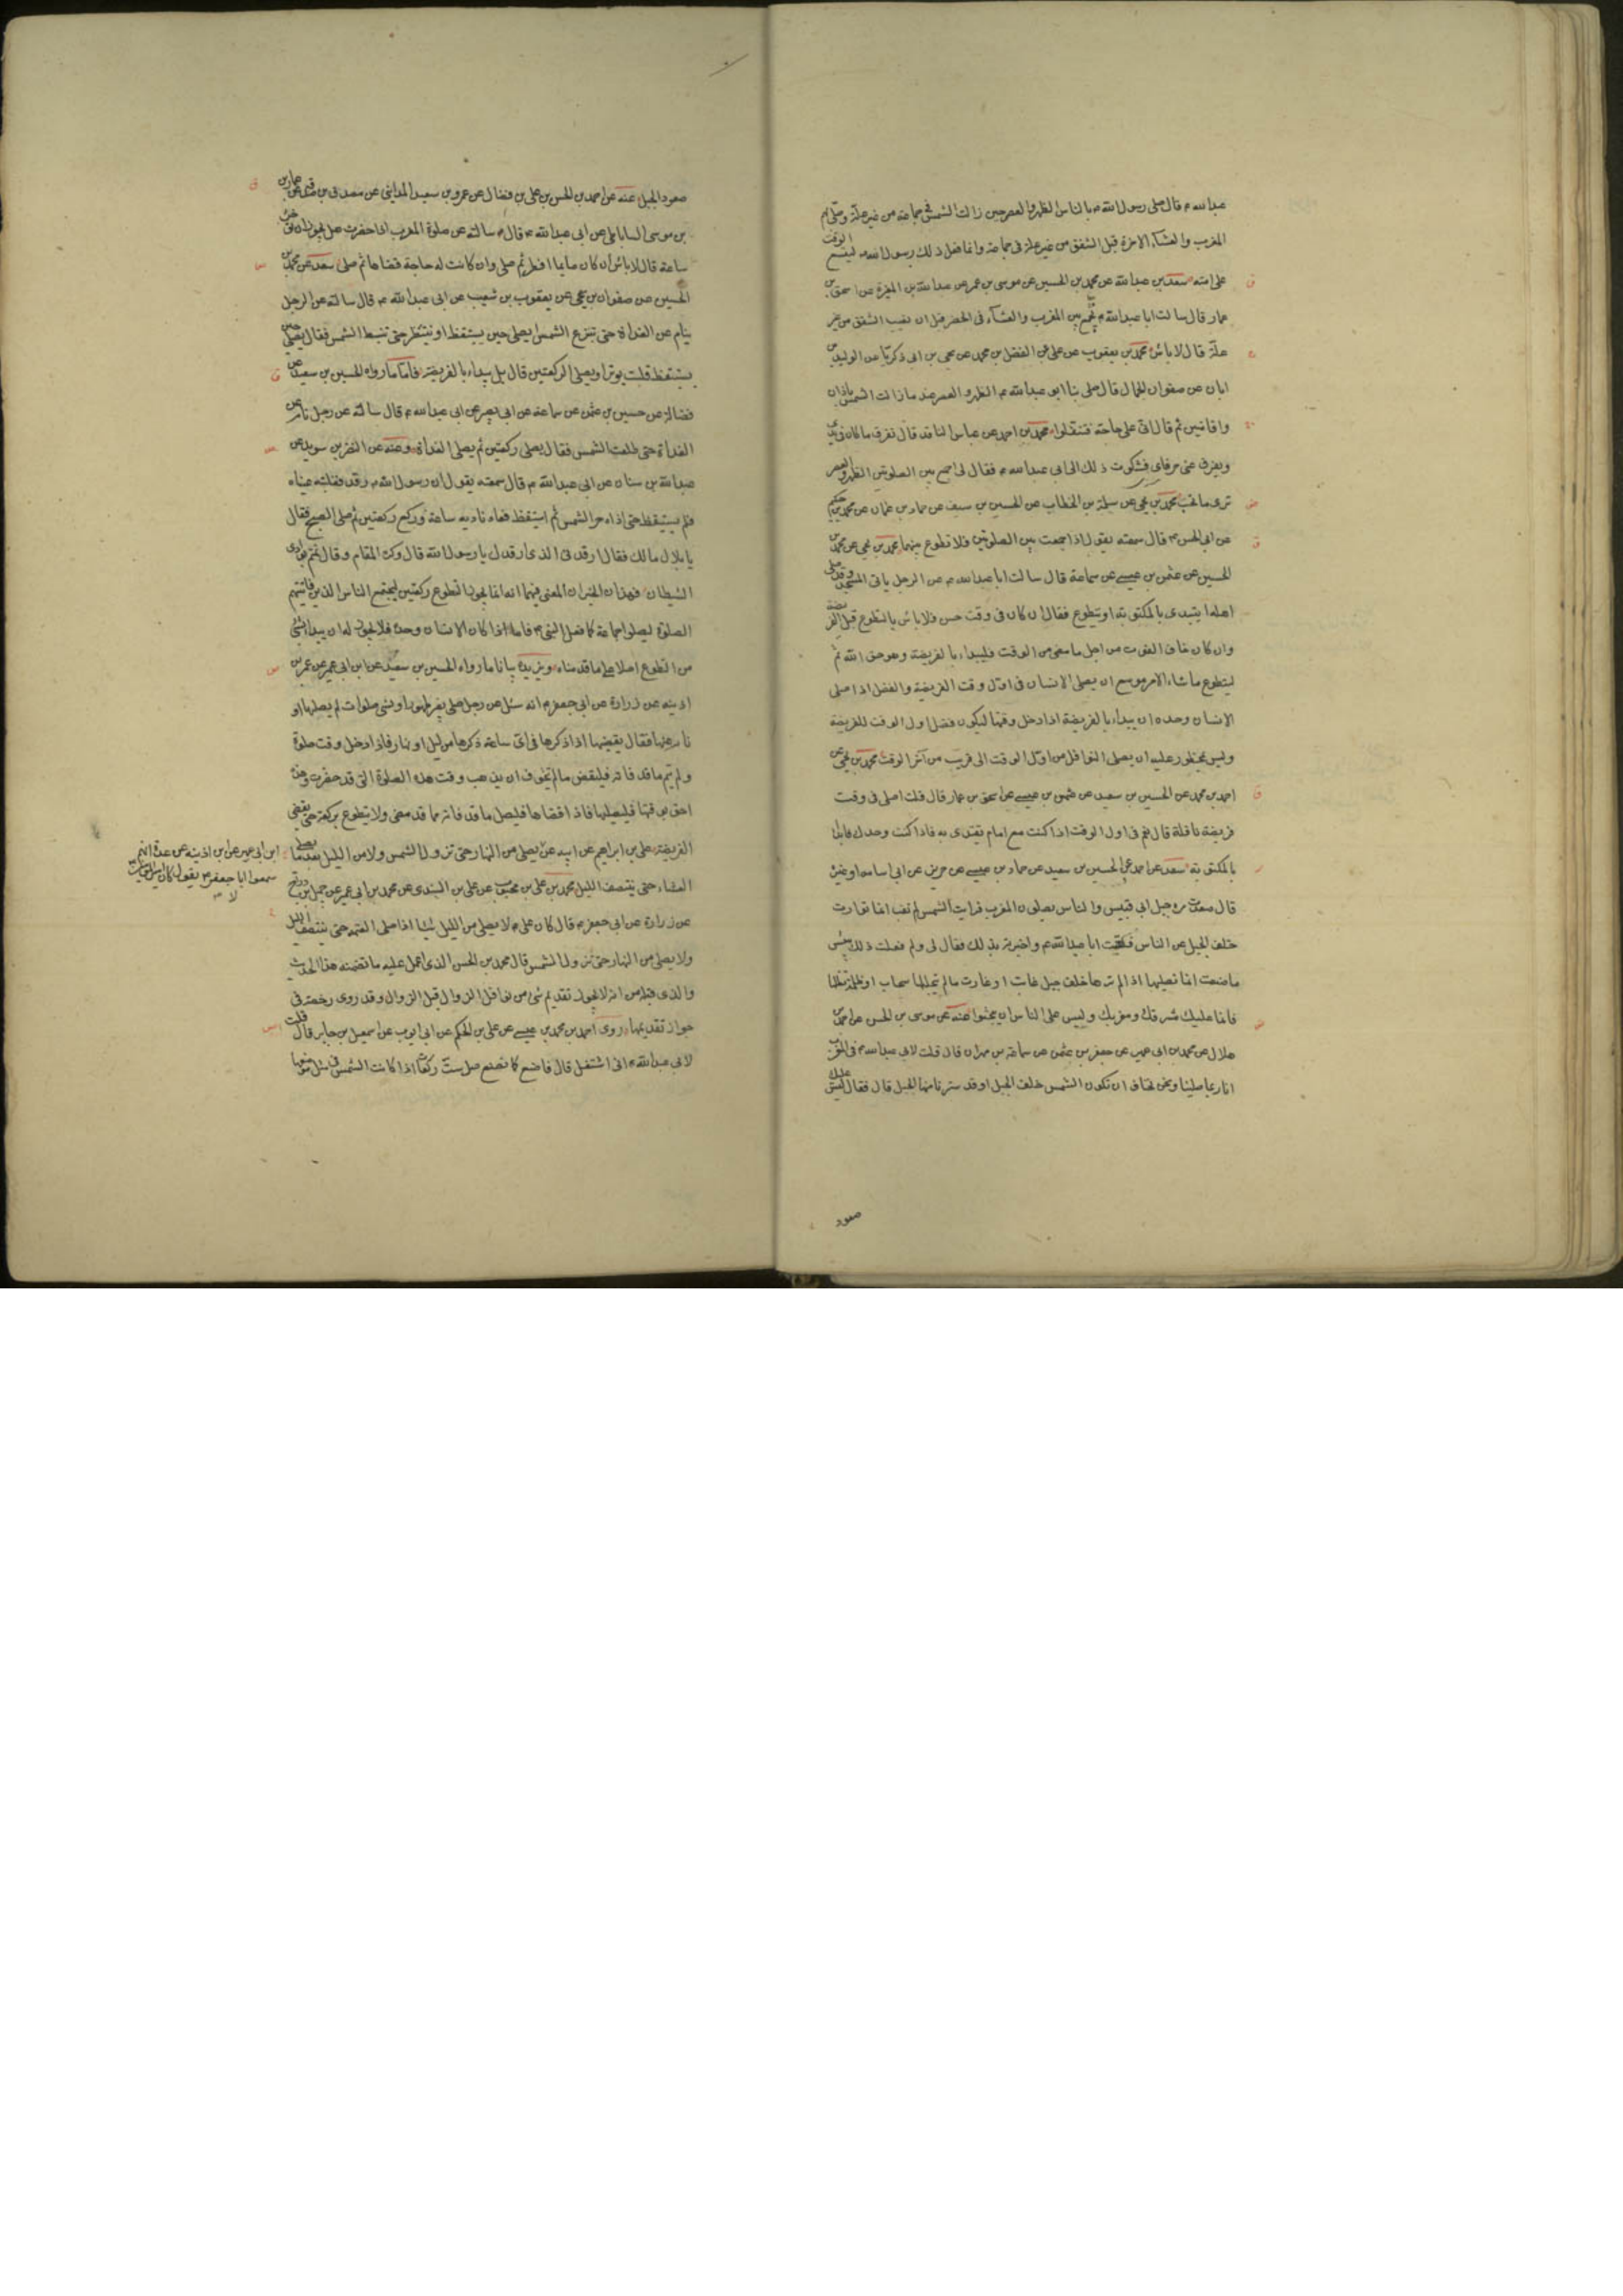 عبدالله م قال صلى رسول الله ص بالناس الظهر والعصر حين زالت الشمس فى جماعة من غير علة وصلى بهم
المغرب والعشاء الاخرة قبل الشفق من غير علة فى جماعة وانما فعل ذلك رسول الله ص ليتسع الوقت
على امته سعد بن عبد الله عن محمد بن الحسين عن موسى بن عمر عن عبد الله بن المغيرة عن اسحق بن
عمار قال سالت ابا عبد الله م نجمع بين المغرب والعشاء فى الحضر قبل ان يغيب الشفق من غير
علة قال لا باس محمد بن يعقوب عن على عن الفضل بن محمد عن يحيى بن ابى زكريا عن الوليد بن
ابان عن صفوان الجمال قال صلى بنا ابو عبد الله م الظهر والعصر عند ما زالت الشمس باذان
واقامتين ثم قال انى على حاجة فتنفلوا محمد بن احمد عن عباس الناقد قال تفرق ما كان فى يدى
وتفرق عنى حرفاى فشكوت ذلك الى ابى عبد الله م فقال لى اجمع بين الصلوتين الظهر والعصر
ترى ما تحب محمد بن يحيى عن سلمة بن الخطاب عن الحسين بن سيف عن حماد بن عثمان عن محمد بن حكيم
عن ابى الحسن م قال سمعته يقول اذا جمعت بين الصلوتين فلا تطوع بينهما محمد بن يحيى عن محمد بن
الحسين عن عثمن بن عيسى عن سماعة قال سالت ابا عبد الله م عن الرجل ياتى المسجد وقد صلى
اهله ايبتدى بالمكتوبة او يتطوع فقال ان كان فى وقت حسن فلا باس بالتطوع قبل الفريضة
وان كان خاف الفوت من اجل ما مضى من الوقت فليبداء بالفريضة وهو حق الله ثم
ليتطوع ما شاء الامر موسع ان يصلى الانسان فى اول وقت الفريضة والفضل اذا صلى
الانسان وحده ان يبداء بالفريضة اذا دخل وقتها ليكون فضل اول الوقت للفريضة
وليس بمحظور عليه ان يصلى النوافل من اول الوقت الى قريب من آخر الوقت محمد بن يحيى عن
احمد بن محمد عن الحسين بن سعيد عن عثمن بن عيسى عن اسحق بن عمار قال قلت اصلى فى وقت
فريضة نافلة قال نعم فى اول الوقت اذا كنت مع امام تقتدى به فاذا كنت وحدك فابدأ
بالمكتوبة سعد عن احمد عن الحسين بن سعيد عن حماد بن عيسى عن حريز عن ابى اسامه او غيره
قال صعدت مرة جبل ابى قبيس والناس يصلون المغرب فرايت الشمس لم تغب انما توارت
خلف الجبل عن الناس فلقيت ابا عبد الله م واخبرته بذلك فقال لى ولم فعلت ذلك بئس
ما صنعت انما تصليها اذا لم ترها خلف جبل غابت او غارت ما لم يتجللها سحاب او ظلمة تظلها
فانما عليك مشرقك ومغربك وليس على الناس ان يبحثوا عنه عن موسى بن الحسن عن احمد بن
هلال عن محمد بن ابى عمير عن جعفر بن عثمن عن سماعة بن مهران قال قلت لابى عبد الله م فى المغرب
انا ربما صلينا ونحن نخاف ان تكون الشمس خلف الجبل او قد سترنا منها الجبل قال فقال ليس عليك
صعود
صعود الجبل عنه عن احمد بن الحسن بن على بن فضال عن عمرو بن سعيد المداينى عن مصدق بن صدقة عن عمار بن
بن موسى الساباطى عن ابى عبد الله م قال سالته عن صلوة المغرب اذا حضرت هل يجوز ان تؤخر
ساعة قال لا باس ان كان صايما افطر ثم صلى وان كانت له حاجة قضاها ثم صلى سعد عن محمد بن
الحسين عن صفوان بن يحيى عن يعقوب بن شعيب عن ابى عبد الله م قال سالته عن الرجل
ينام عن الغداة حتى تبزغ الشمس ايصلى حين يستيقظ او ينتظر حتى تنبسط الشمس فقال يصلى حين
يستيقظ قلت يوتر او يصلى الركعتين قال بل يبداء بالفريضة فاما ما رواه الحسين بن سعيد عن
فضالة عن حسين بن عثمن عن سماعة عن ابى بصير عن ابى عبد الله م قال سالته عن رجل نام عن
الغداة حتى طلعت الشمس فقال يصلى ركعتين ثم يصلى الغداة وعنه عن النضر بن سويد عن
عبد الله بن سنان عن ابى عبد الله م قال سمعته يقول ان رسول الله ص رقد فغلبته عيناه
فلم يستيقظ حتى اذاه حر الشمس ثم استيقظ فعاد ناديه ساعة وركع ركعتين ثم صلى الصبح فقال
يا بلال ما لك فقال ارقدنى الذى ارقدك يا رسول الله قال وكره المقام وقال نمتم بوادى
الشيطان فهذان الخبران المعنى فيهما انه انما يجوز التطوع ركعتين ليجتمع الناس الذين فاتتهم
الصلوة ليصلوا جماعة كما فعل النبى ص فاما اذا كان الانسان وحده فلا يجوز له ان يبداء بشئ
من التطوع اصلا على ما قدمناه ويزيده بيانا ما رواه الحسين بن سعيد عن ابن ابى عمير عن عمر بن
اذينه عن زرارة عن ابى جعفر م انه سئل عن رجل صلى بغير طهور او نسى صلوات لم يصلها او
نام عنها فقال يقضيها اذا ذكرها فى اى ساعة ذكرها من ليل او نهار فاذا دخل وقت صلوة
ولم يتم ما قد فاته فليقض ما لم يتخوف ان يذهب وقت هذه الصلوة التى قد حضرت وهذه
احق بوقتها فليصلها فاذا قضاها فليصل ما قد فاته مما قد مضى ولا يتطوع بركعة حتى يقضى
الفريضة على بن ابراهيم عن ابيه عن يصلى من النهار حتى تزول الشمس ولا من الليل بعد ما يصلى
العشاء حتى ينتصف الليل محمد بن على بن محبوب عن على بن السندى عن محمد بن ابى عمير عن جميل بن دراج
عن زرارة عن ابى جعفر م قال كان على م لا يصلى من الليل شيئا اذا صلى العتمة حتى ينتصف الليل
ولا يصلى من النهار حتى تزول الشمس قال محمد بن الحسن الذى اعمل عليه ما تضمنه هذا الحديث
والذى قبله من انه لا يجوز تقديم شئ من نوافل الزوال قبل الزوال وقد روى رخصة فى
جواز تقديمها روى احمد بن محمد بن عيسى عن على بن الحكم عن ابى ايوب عن اسمعيل بن جابر قال قلت
لابى عبد الله م انى اشتغل قال فاصنع كما نصنع صل ست ركعات اذا كانت الشمس فى مثل موضعها
ابن ابى عمير عن ابن اذينه عن عدة انهم
سمعوا ابا جعفر م يقول كان امير المؤمنين
لا